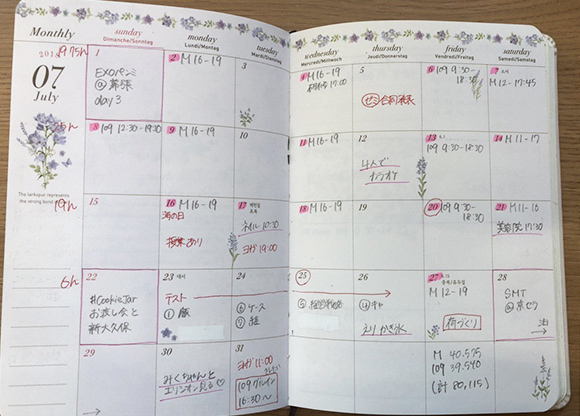 Monthly
07
July
The larkspur represents
the strong bond
6h
sunday
Dimanche/Sonntag
monday
Lundi/Montag
tuesday
Mardi/Dienstag
wednesday
Mercredi/Mittwoch
thursday
Jeudi/Donnerstag
friday
Vendredi/Freitag
saturday
Samedi/Samstag
1
EXOペンミ
@幕張
day 3
2 M 16-19
3
4 M 16-19
17:00
5
6 109 9:30-
18:30
7
M 12-17:45
8 109 12:30-18:30
9 M 16-19
10
11 M 16-19
12
4人で
カラオケ
13
109 9:30-
18:30
14 M 11-17
15
16 M 16-19
海の日
授業あり
17
ネイル 10:30
ヨガ 19:00
18 M 16-19
19
20 109 9:30-
18:30
21 M 11-16
美容院 17:30
22
#CookieJar
お渡し会と
新大久保
23
テスト
①
24
⑥ ケース
⑦
25
⑤
26
④ キャ
えり かき氷
27
M 12-19
荷づくり
28
SMT
@京セラ
泊
29
30
みくちゃんと
エリンギン見る♡
31
ヨガ 11:00
109
16:30~
M 40.575
109 39.540
(計 80,115)